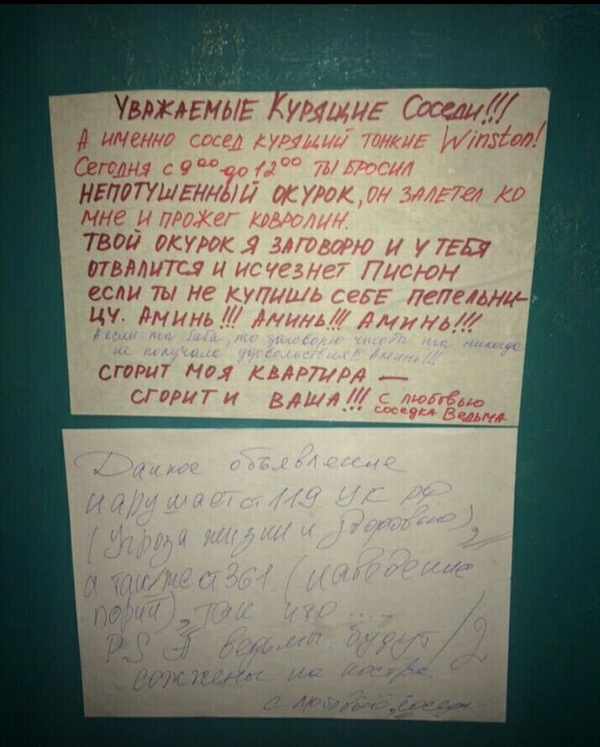 УВАЖАЕМЫЕ КУРЯЩИЕ СОСЕДИ!!!
А ИМЕННО СОСЕД КУРЯЩИЙ ТОНКИЕ Winston!
СЕГОДНЯ С 9⁰⁰ ДО 12⁰⁰ ТЫ БРОСИЛ
НЕПОТУШЕННЫЙ ОКУРОК, ОН ЗАЛЕТЕЛ КО
МНЕ И ПРОЖЕГ КОВРОЛИН.
ТВОЙ ОКУРОК Я ЗАГОВОРЮ И У ТЕБЯ
ОТВАЛИТСЯ И ИСЧЕЗНЕТ ПИСЮН
ЕСЛИ ТЫ НЕ КУПИШЬ СЕБЕ ПЕПЕЛЬНИ-
ЦУ. АМИНЬ!!! АМИНЬ!!! АМИНЬ!!!
А если ты баба, то заговорю чтобы ты никогда
не получала удовольствия!! Аминь!!!
СГОРИТ МОЯ КВАРТИРА —
СГОРИТ И ВАША!!! С ЛЮБОВЬЮ
СОСЕДКА ВЕДЬМА
Данное объявление
нарушает ст 119 УК РФ
(Угроза жизни и здоровью),
а также ст 361 (наведение
порчи), так что ....
PS ведьмы будут
сожжены на костре.
с любовью, соседи